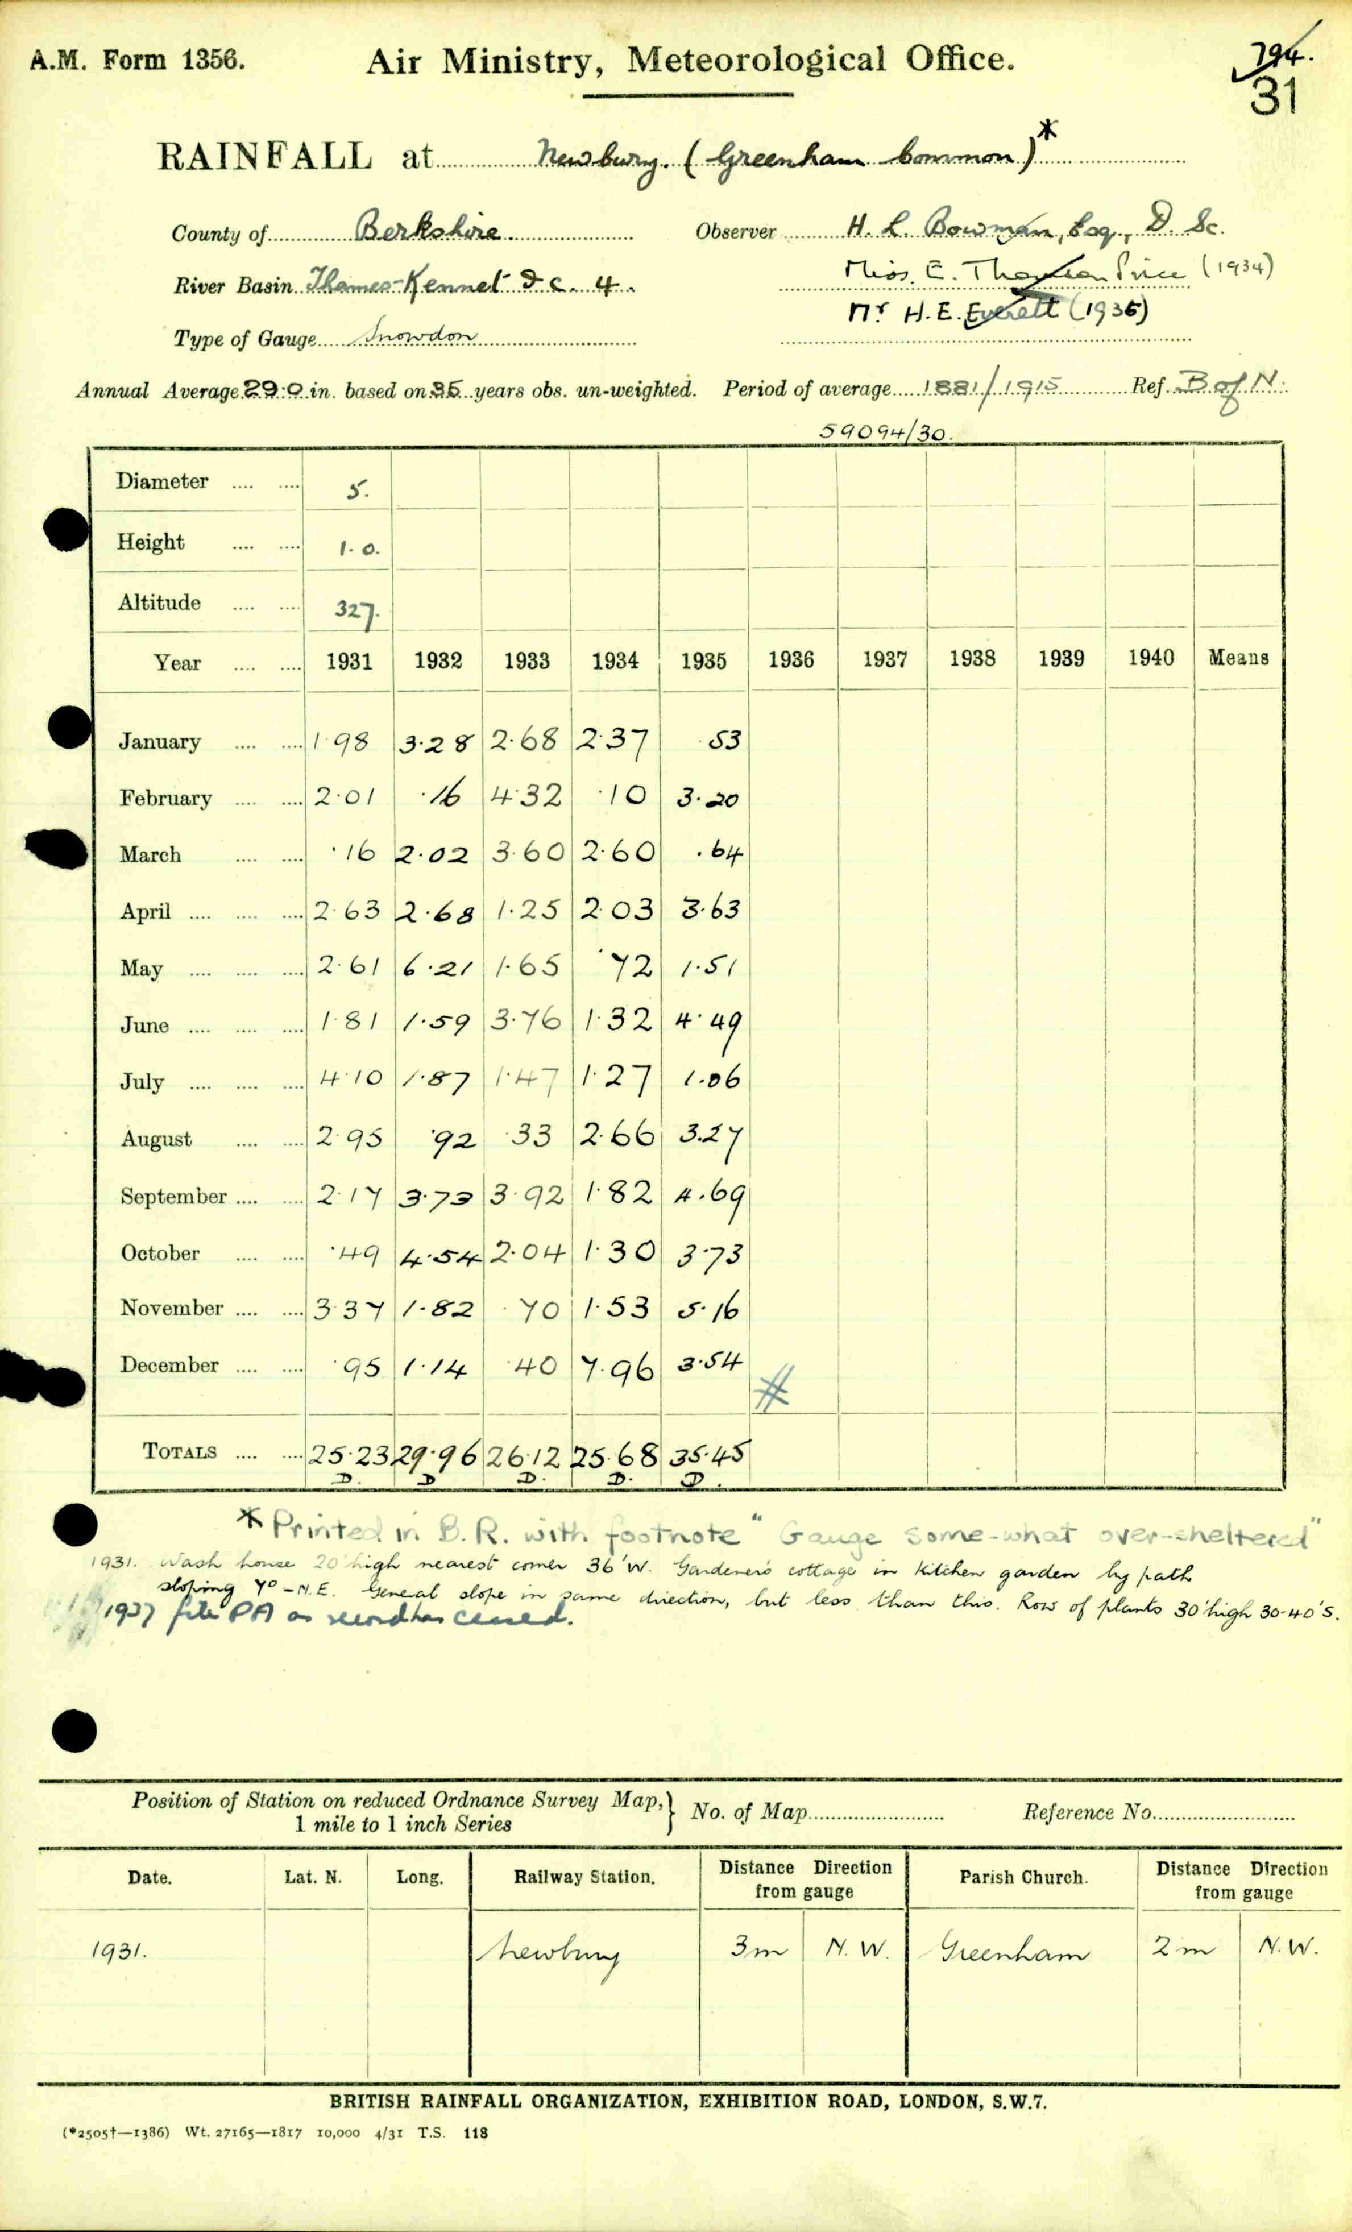 A.M. Form 1356.
Air Ministry, Meteorological Office.
794.
31
RAINFALL at Newbury. (Greenham Common)*
County of Berkshire. Observer H. L. Bowman, Esq., D. Sc.
River Basin Thames-Kennet &c. 4. Miss. E. Price (1934)
Mr H. E. Everett (1935)
Type of Gauge Snowdon
Annual Average 29.0 in. based on 35 years obs. un-weighted. Period of average 1881/1915 Ref. B of N.
59094/30.
Diameter .... .... 5.
Height .... .... 1.0.
Altitude .... .... 327.
Year .... .... 1931 1932 1933 1934 1935 1936 1937 1938 1939 1940 Means
January .... .... 1.98 3.28 2.68 2.37 .53
February .... .... 2.01 .16 4.32 .10 3.20
March .... .... .16 2.02 3.60 2.60 .64
April .... .... .... 2.63 2.68 1.25 2.03 3.63
May .... .... .... 2.61 6.21 1.65 .72 1.51
June .... .... .... 1.81 1.59 3.76 1.32 4.49
July .... .... .... 4.10 1.87 1.47 1.27 1.06
August .... .... 2.95 .92 .33 2.66 3.27
September .... .... 2.17 3.73 3.92 1.82 4.69
October .... .... .49 4.54 2.04 1.30 3.73
November .... .... 3.37 1.82 .70 1.53 5.16
December .... .... .95 1.14 .40 7.96 3.54
#
TOTALS .... .... 25.23 29.96 26.12 25.68 35.45
D. D D. D. D.
* Printed in B.R. with footnote "Gauge some-what over-sheltered"
1931. Wash house 20' high nearest corner 36' W. Gardener's cottage in kitchen garden by path
sloping 7° - N.E. General slope in same direction, but less than this. Row of plants 30' high 30-40' S.
1937 file PA as record has ceased.
Position of Station on reduced Ordnance Survey Map, } No. of Map Reference No.
1 mile to 1 inch Series
Date. Lat. N. Long. Railway Station. Distance Direction from gauge Parish Church. Distance Direction from gauge
1931. Newbury 3m N.W. Greenham 2m N.W.
BRITISH RAINFALL ORGANIZATION, EXHIBITION ROAD, LONDON, S.W.7.
(*2505†—1386) Wt. 27165—1817 10,000 4/31 T.S. 118